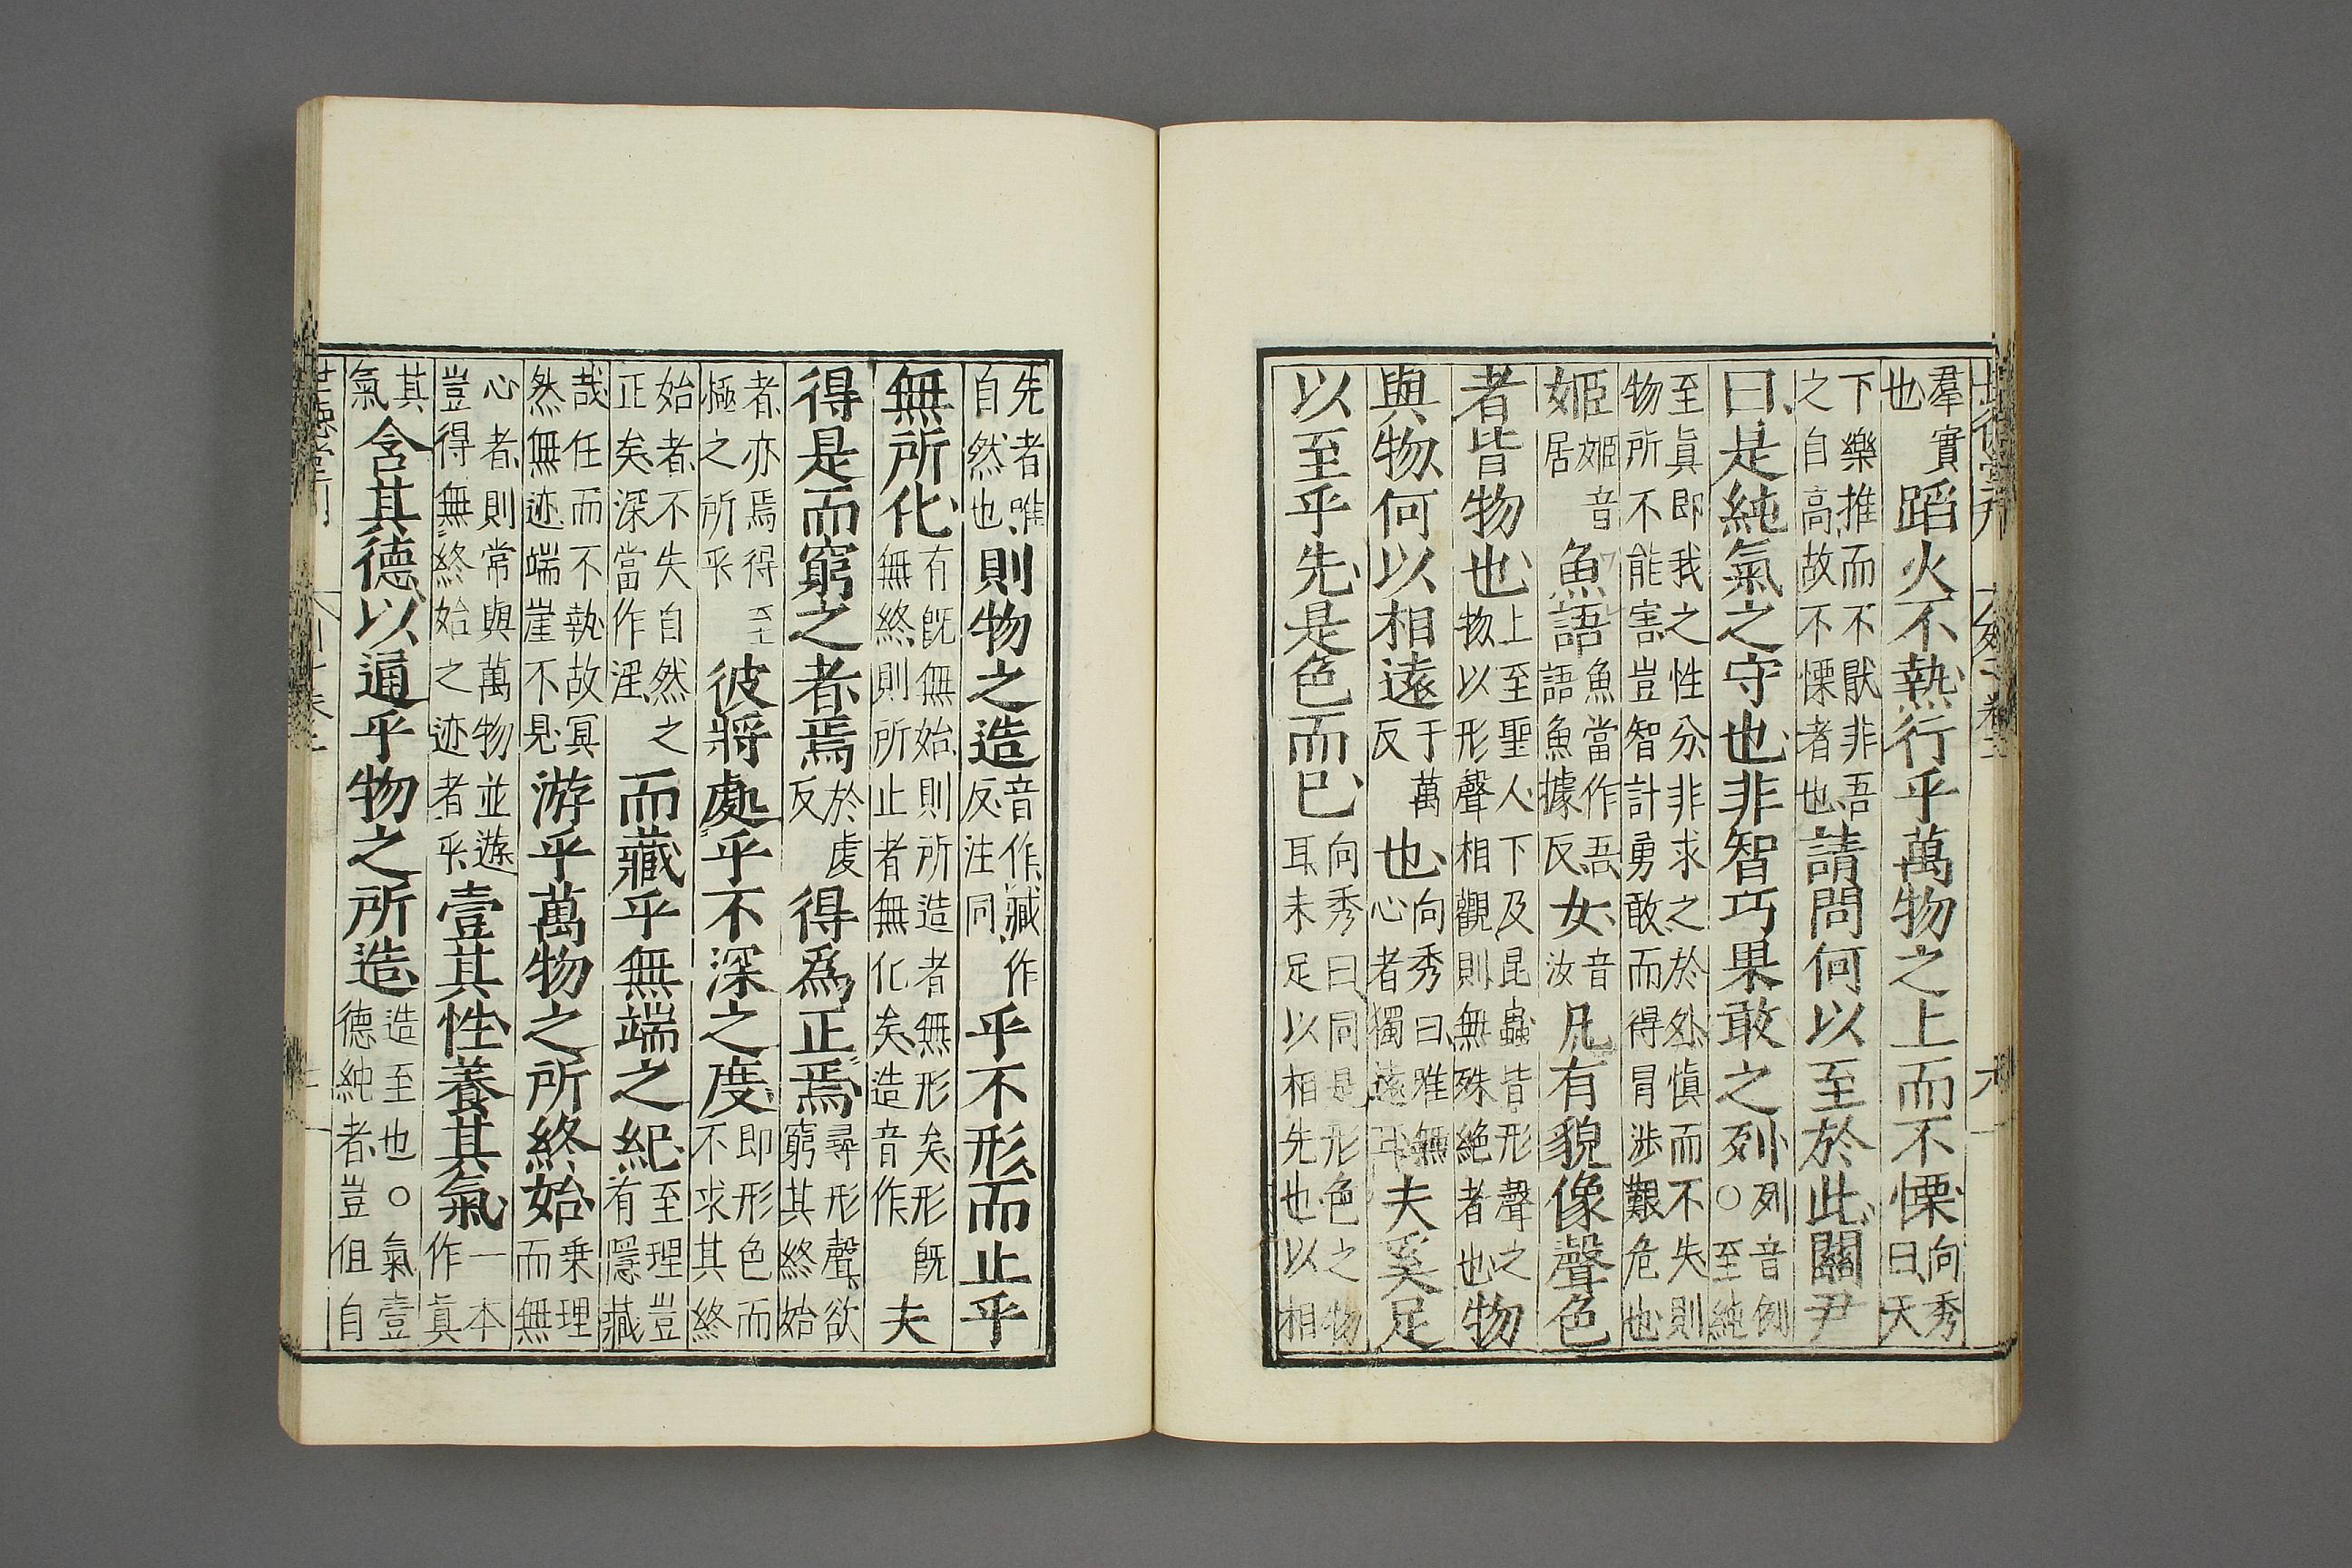 羣實也蹈火不熱行乎萬物之上而不慄向秀曰天
下樂推而不猒非吾之自高故不慄者也請問何以至於此關尹
曰是純氣之守也非智巧果敢之列列音例○至純
至眞即我之性分非求之於外愼而不失則物所不能害豈智計勇敢而得冒渉艱危也
姬姬音居魚語魚當作吾語魚據反女音汝凡有貌像聲色
者皆物也上至聖人下及昆蟲皆形聲之物以形聲相觀則無殊絶者也物
與物何以相遠于萬反也向秀曰唯無心者獨遠耳夫奚足
以至乎先是色而已向秀曰同是形色之物耳未足以相先也以相
先者唯自然也則物之造音作臧作反注同乎不形而止乎
無所化有旣無始則所造者無形矣形旣無終則所止者無化矣造音作夫
得是而窮之者焉於虔反得爲正焉尋形聲欲窮其終始
者亦焉得至極之所乎彼將處乎不深之度即形色而不求其終
始者不失自然之正矣深當作淫而藏乎無端之紀至理豈有隱藏
哉任而不執故冥然無迹端崖不見游乎萬物之所終始乗理而無
心者則常與萬物並遊豈得無終始之迹者乎壹其性養其氣一本作眞
其氣含其德以通乎物之所造造至也○氣壹德純者豈但自